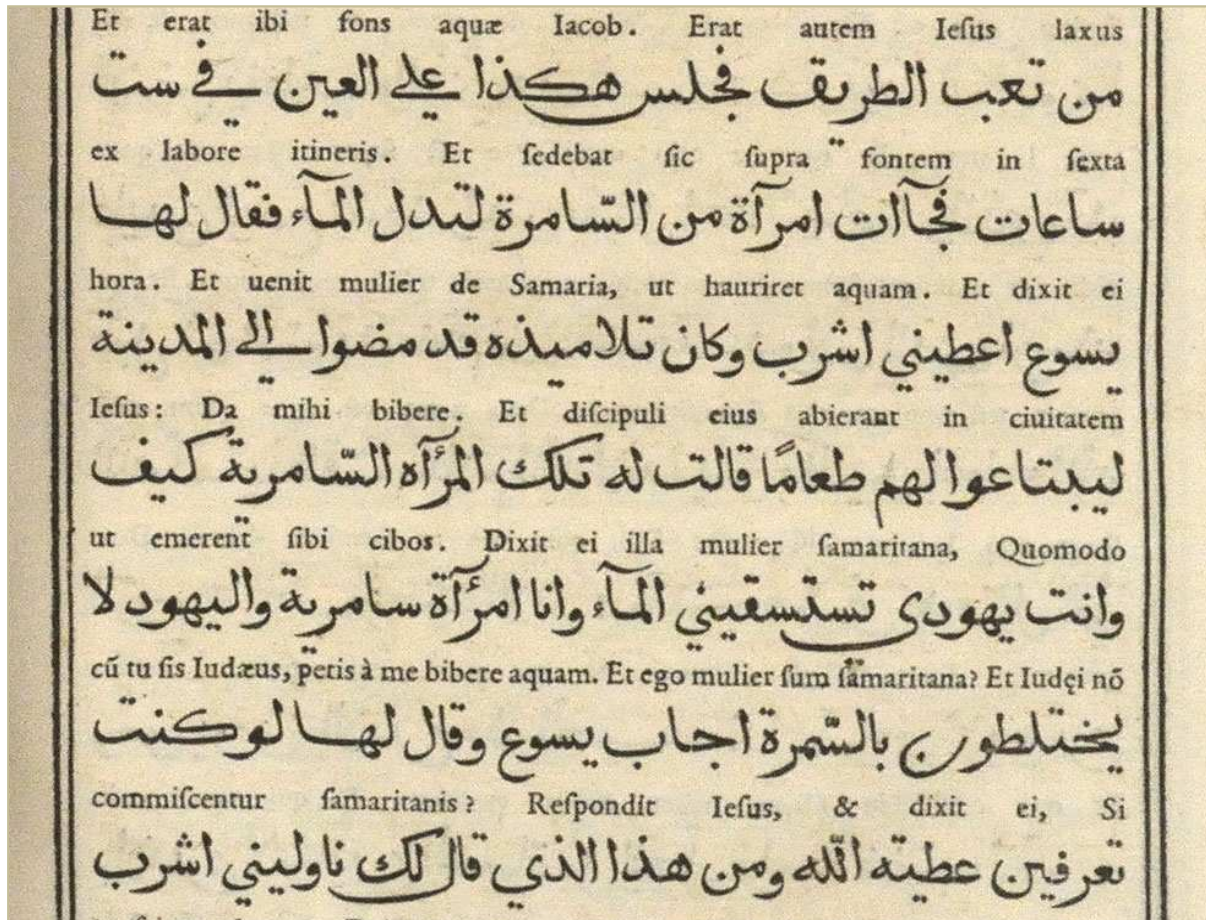 Et erat ibi fons aquæ Iacob. Erat autem Ieſus laxus
من تعب الطريق فجلس هكذا علي العين في ست
ex labore itineris. Et ſedebat ſic ſupra fontem in ſexta
ساعات فجاآت امرآة من السّامرة لتدل المآء فقال لها
hora. Et uenit mulier de Samaria, ut hauriret aquam. Et dixit ei
يسوع اعطيني اشرب وكان تلاميذه قد مضوا الي المدينة
Ieſus: Da mihi bibere. Et diſcipuli eius abierant in ciuitatem
ليبتاعوا لهم طعامًا قالت له تلك المرٔآه السّامرية كيف
ut emerent ſibi cibos. Dixit ei illa mulier ſamaritana, Quomodo
وانت يهودى تستسقيني المآء وانا امرٔآة سامرية واليهود لا
cū tu ſis Iudæus, petis à me bibere aquam. Et ego mulier ſum ſamaritana? Et Iudęi nō
يختلطون بالسّمرة اجاب يسوع وقال لها لوكنت
commiſcentur ſamaritanis? Reſpondit Ieſus, & dixit ei, Si
تعرفين عطيته اللّه ومن هذا الذي قال لك ناوليني اشرب